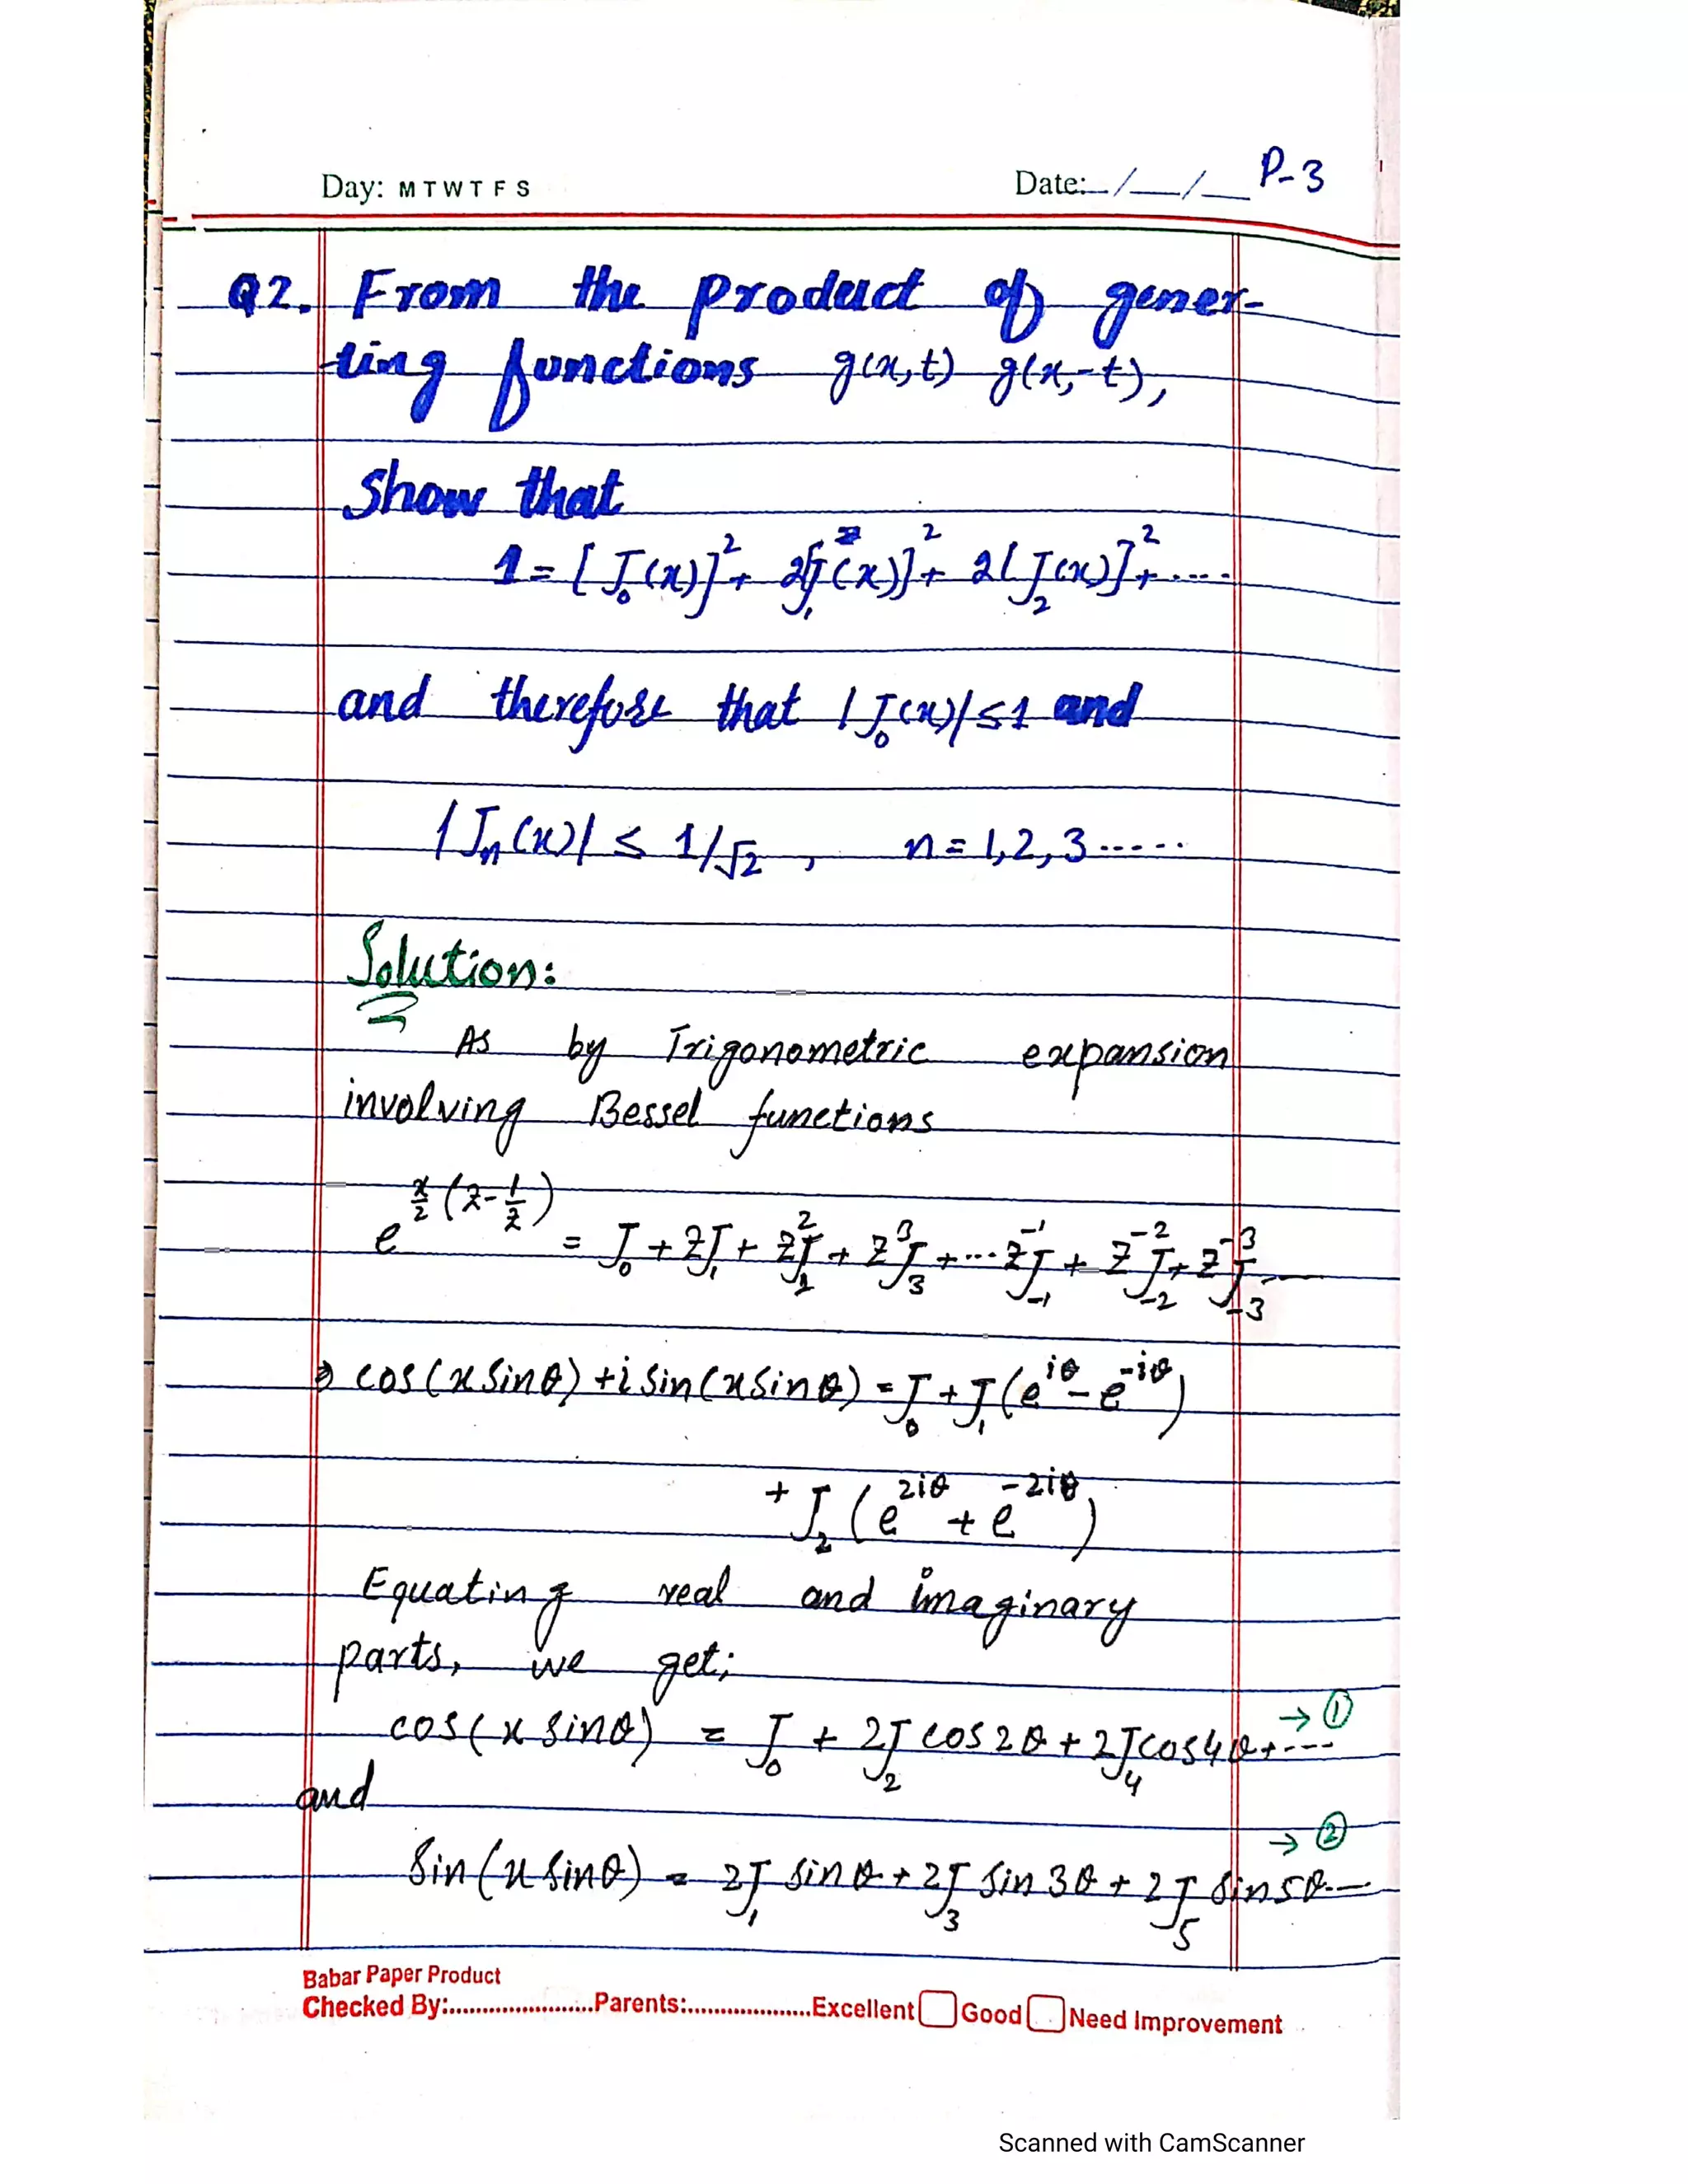 P-3
Day: M T W T F S Date: / /
Q2. From the product of gener-
ting functions g(x,t) g(x,-t),
Show that
1 = [J₀(x)]² + 2[J₁(x)]² + 2[J₂(x)]² + ....
and therefore that |J₀(x)| ≤ 1 and
|Jn(x)| ≤ 1/√2 , n = 1,2,3.....
Solution:
As by Trigonometric expansion
involving Bessel functions
e^{x/2 (z - 1/z)} = J₀ + zJ₁ + z²J₂ + z³J₃ + ... z⁻¹J₋₁ + z⁻²J₋₂ + z⁻³J₋₃ ---
⇒ cos(x sinθ) + i sin(x sinθ) = J₀ + J₁(e^{iθ} - e^{-iθ})
+ J₂(e^{2iθ} + e^{-2iθ})
Equating real and imaginary
parts, we get;
cos(x sinθ) = J₀ + 2J₂ cos2θ + 2J₄ cos4θ + .... → ①
and
Sin(x sinθ) = 2J₁ sinθ + 2J₃ sin3θ + 2J₅ sin5θ --- → ②
Babar Paper Product
Checked By:........................Parents:....................Excellent Good Need Improvement
Scanned with CamScanner